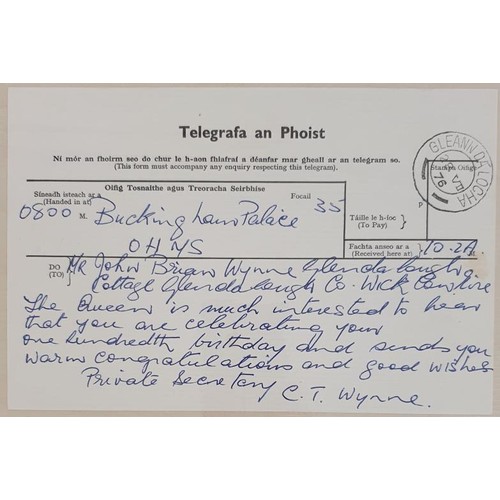 Telegrafa an Phoist
Ní mór an fhoirm seo do chur le h-aon fhiafraí a déanfar mar gheall ar an telegram so.
(This form must accompany any enquiry respecting this telegram.)
GLEANN DÁ LOCHA
76
Stampa Oifig
Síneadh isteach ar a (Handed in at)
Oifig Tosnaithe agus Treoracha Seirbhíse
Focail
0800 M.
Buckingham Palace
35
OHMS
Táille le h-íoc (To Pay)
P
Fachta anseo ar a (Received here at)
10.2A
DO (TO)
Mr John Brian Wynne Glendalough
Cottage Glendalough Co. Wicklow Eire
The Queen is much interested to hear
that you are celebrating your
one hundredth birthday and sends you
warm congratulations and good wishes
Private Secretary C.T. Wynne.